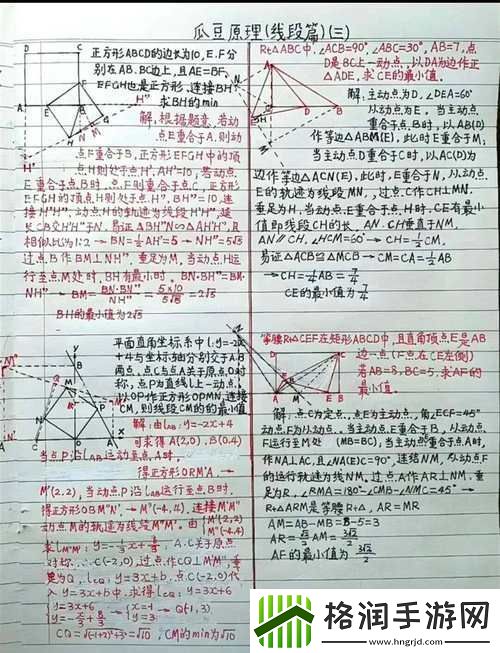 瓜豆原理(线段篇)(三)
正方形ABCD的边长为10,E.F分
别在AB.BC边上,且AE=BF,
EFGH也是正方形,连接BH,
求BH的min
解:根据题意,若动
点E重合于A,则动
点F重合于B,正方形EFGH中的顶
点H则处于点H',AH'=10,若动点
E重合于点B时,点F则重合于点C,正方形
EFGH的顶点H则处于点H",BH"=10,连
接H'H",动点H的轨迹为线段H'H",延
长CB交H'H"于N,易证△BH"N∽△AH'H",且
相似比为1:2→BN=½AH'=5→NH"=5√5
过点B作BM⊥NH",垂足为M,当动点H运
行至点M处时,BH有最小时,BN·BH"=BM·
NH"→BM=BN·BN"/NH"=5×10/5√5=2√5
BH的最小值为2√5
Rt△ABC中,∠ACB=90°,∠ABC=30°,AB=7,点
D是BC上一动点,以DA为边作正
△ADE,求CE的最小值.
解:主动点为D,∠DEA=60°
从动点为E,当主动点
重合于点B时,以AB(D)
作等边△ABM(E),此时E重合于M;
当主动点D重合于C时,以AC(D)为
边作等边△ACN(E),此时,E重合于N,从动点
E的轨迹为线段MN,过点C作CH⊥MN,
垂足为H,当动点E重合于点H时,CE有最小
值即线段CH的长,AN CH垂直于NM,
AN∥CH,∠HCM=60°→CH=½CM,
易证△ACB≌△MCB→CM=CA=½AB
→CH=¼AB=7/4
CE的最小值为7/4
平面直角坐标系中l:y=-2x
+4与坐标轴分别交于A.B
两点,点C与点A关于原点O对
称,点P为直线l上一动点,
以OP作正方形OPMN,连接
CM,则线段CM的的最小值
解:由lAB:y=-2x+4
可求得A(2,0).B(0.4)
当点P沿lAB运动至点A时,
得正方形ORM'A.→
M'(2,2),当动点P沿lAB运行至点B时,
得正方形OBM"N'.→M"(-4,4),连接M'M"
动点M的轨迹为线段M'M".由{M'(2,2) M"(-4.4)
求lM'M":y=-⅓x+8/3 A.C关于原点
对称.∴C(-2,0),过点作CQ⊥M'M",垂
足为Q,lCQ:y=3x+b,点C(-2,0)代
入y=3x+b中,求得lCQ:y=3x+6
{y=3x+6 y=-x/3+8/3→{x=-1 y=3→Q(-1,3)
CQ=√(-1+2)²+3²=√10,CM的min为√10
等腰Rt△CEF在矩形ABCD中,且直角顶点E是AB
边一点(F点在CE左侧)
若AB=8,BC=5,求AF的
最小值.
解:点C为定点,点E为主动点,角∠ECF=45°
动点F为从动点,当主动点E重合于B,从动点
F运行至M处(MB=BC);当主动点E重合于点A时,
作NA⊥AC,且∠NA(E)C=90°,连结NM,从动点F
的运行轨迹为线NM,过点A作AR⊥NM,垂
足为R,∠RMA=180°-∠CMB-∠NMC=45°→
R△ARM是等腰Rt△,AR=MR
AM=AB-MB=8-5=3
AR=√2/2AM=3√2/2
AF的最小值为3√2/2
格润手游网
www.hngrjd.com